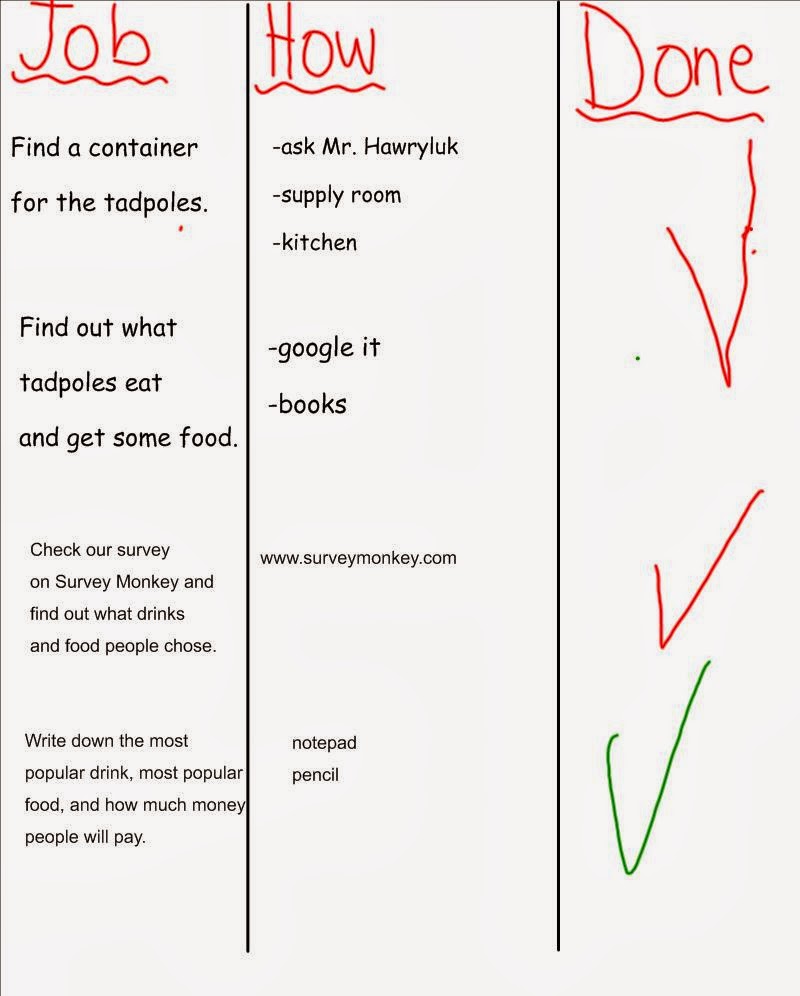 Job
How
Done
Find a container
for the tadpoles.
-ask Mr. Hawryluk
-supply room
-kitchen
Find out what
tadpoles eat
and get some food.
-google it
-books
Check our survey
on Survey Monkey and
find out what drinks
and food people chose.
www.surveymonkey.com
Write down the most
popular drink, most popular
food, and how much money
people will pay.
notepad
pencil